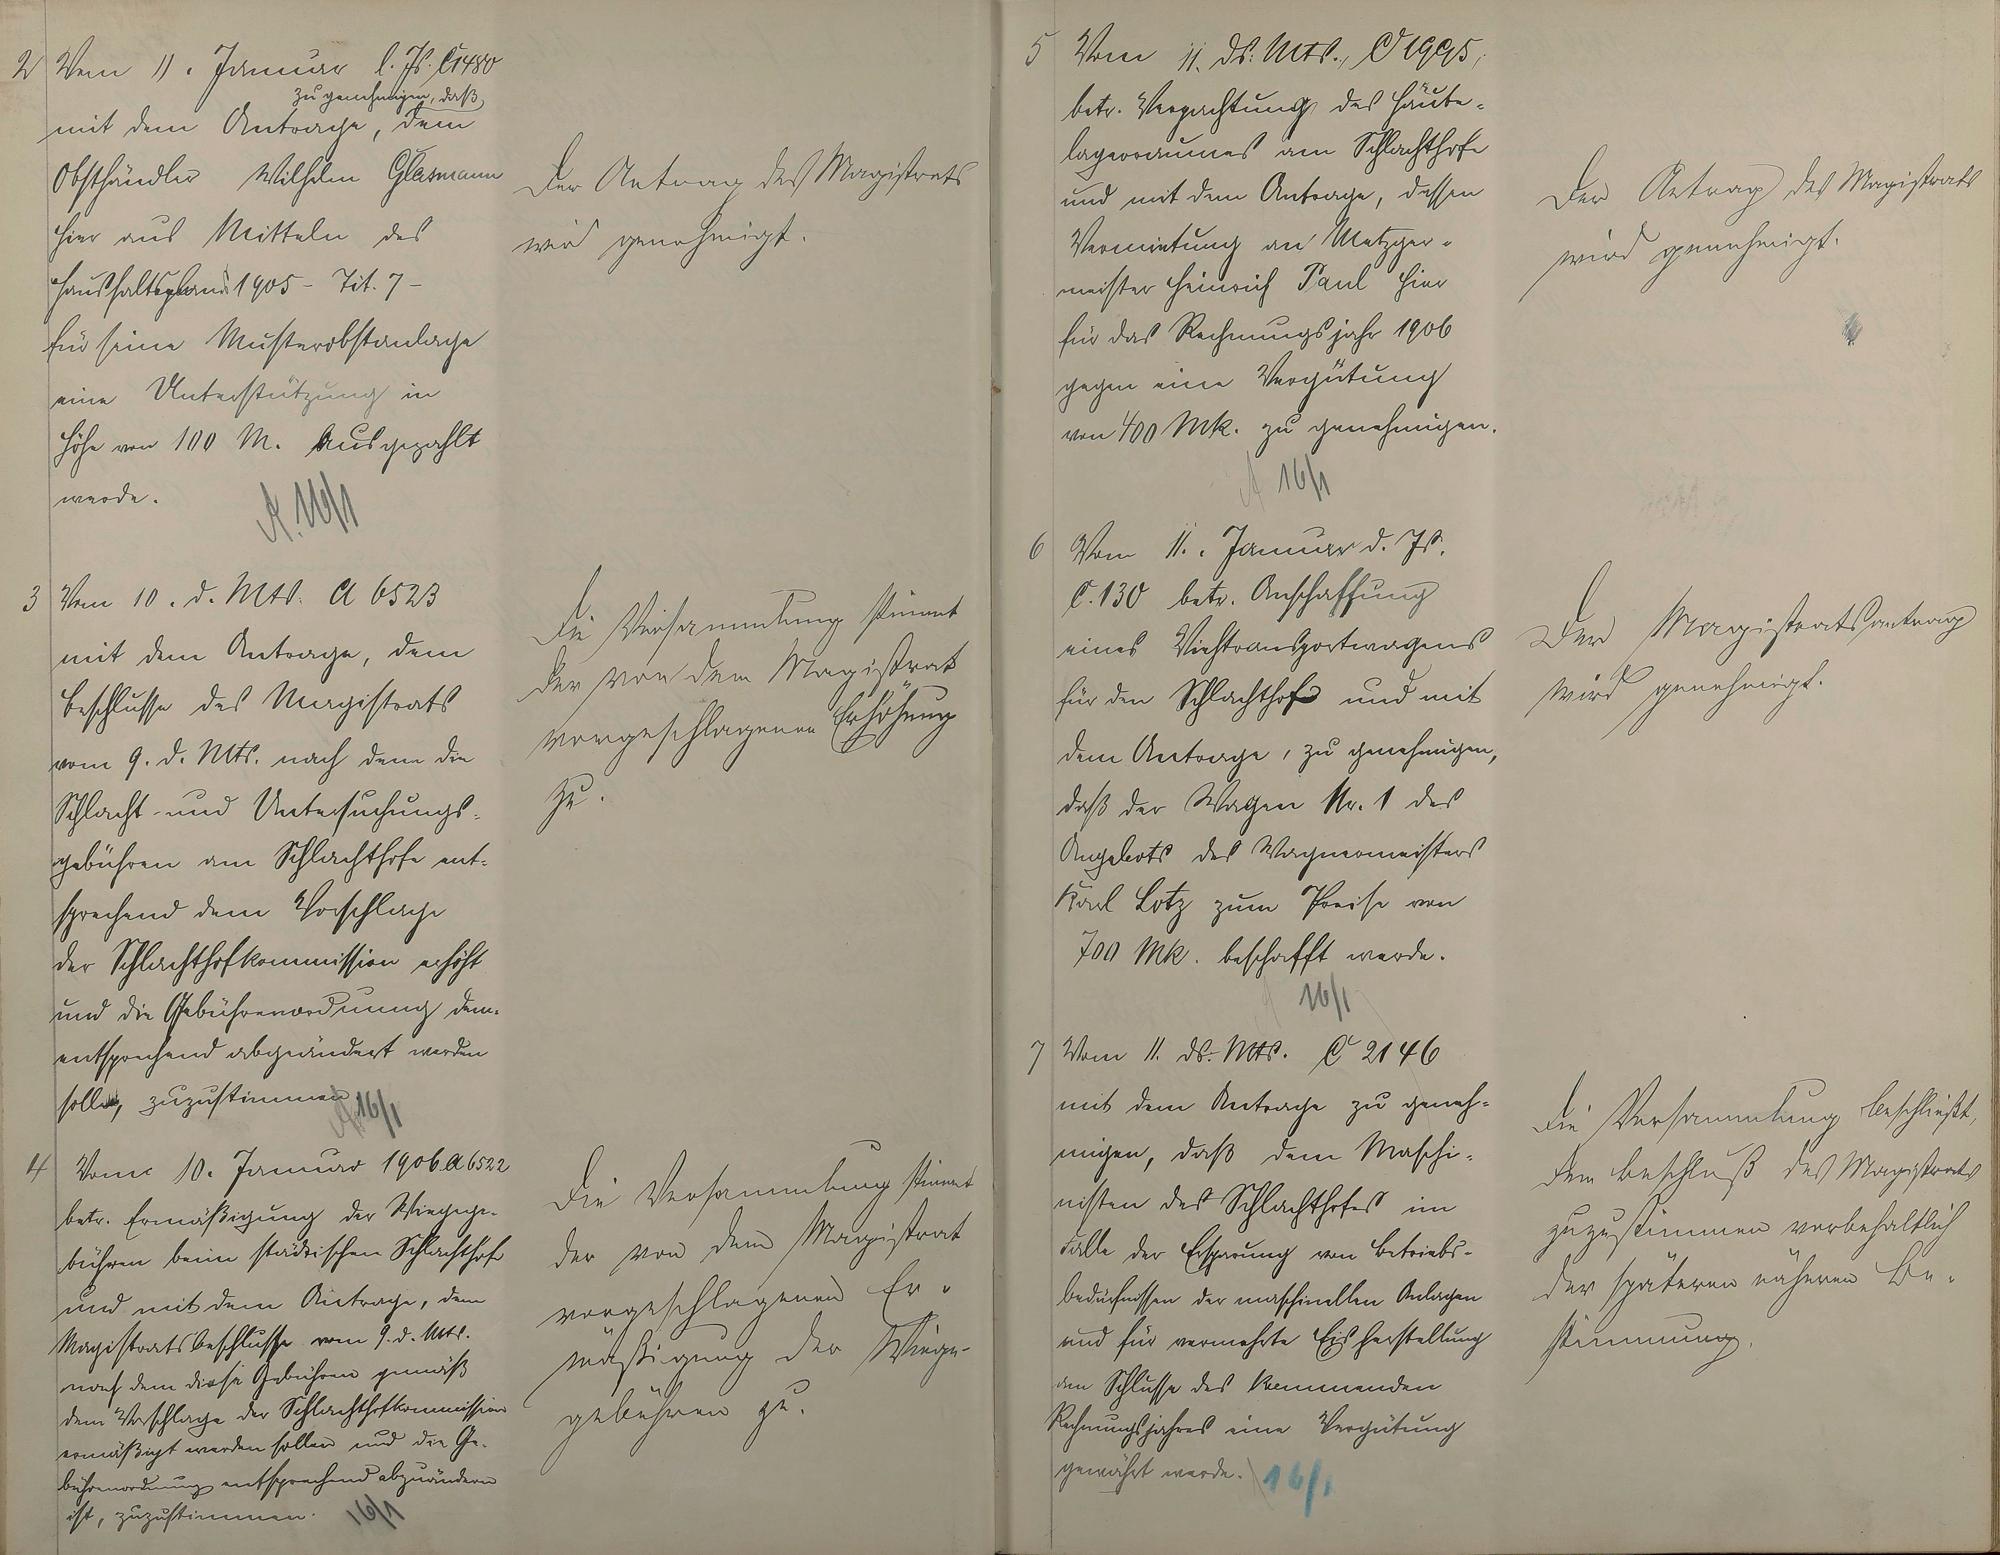 2 Vom 11. Januar l. Js. C 1480
zu genehmigen, daß
mit dem Antrage, dem
Obsthändler Wilhelm Glasmann
hier aus Mitteln des
Haushaltsplans 1905 - Tit. 7 -
für seine Musterobstanlage
eine Unterstützung in
Höhe von 100 M. ausgezahlt
werde.
A. 16/1
Der Antrag des Magistrats
wird genehmigt.
3 Vom 10. d. Mts. A 6523
mit dem Antrage, dem
Beschlusse des Magistrats
vom 9. d. Mts. nach dem die
Schlacht- und Untersuchungs-
gebühren am Schlachthofe ent-
sprechend dem Vorschlage
der Schlachthofkommission erhöht
und die Gebührenordnung dem-
entsprechend abgeändert werden
solle, zuzustimmen
16/1
Die Versammlung stimmt
der von dem Magistrat
vorgeschlagenen Erhöhung
zu.
4 Vom 10. Januar 1906 A 6522
betr. Ermäßigung der Wiegege-
bühren beim städtischen Schlachthofe
und mit dem Antrage, dem
Magistratsbeschlusse vom 9. d. Mts.
nach dem diese Gebühren gemäß
dem Vorschlage der Schlachthofkommission
ermäßigt werden sollen und die Ge-
bührenordnung entsprechend abzuändern
ist, zuzustimmen.
16/1
Die Versammlung stimmt
der von dem Magistrat
vorgeschlagenen Er-
mäßigung der Wiege-
gebühren zu.
5 Vom 11. ds. Mts., C 1995,
betr. Verpachtung des Häute-
lagerraumes am Schlachthofe
und mit dem Antrage, dessen
Vermietung an Metzger-
meister Heinrich Paul hier
für das Rechnungsjahr 1906
gegen eine Vergütung
von 400 Mk. zu genehmigen.
A 16/1
Der Antrag des Magistrats
wird genehmigt.
6 Vom 11. Januar d. Js.
C. 130 betr. Anschaffung
eines Viehtransportwagens
für den Schlachthof und mit
dem Antrage, zu genehmigen,
daß der Wagen Nr. 1 des
Angebots des Wagnermeisters
Karl Lotz zum Preise von
700 Mk. beschafft werde.
16/1
Der Magistratsantrag
wird genehmigt.
7 Vom 11. ds. Mts. C 2146
mit dem Antrage zu geneh-
migen, daß dem Maschi-
nisten des Schlachthofes im
Falle der Ersparung von Betriebs-
bedürfnissen der maschinellen Anlagen
und für vermehrte Eisherstellung
am Schlusse des kommenden
Rechnungsjahres eine Vergütung
gewährt werde.
16/1
Die Versammlung beschließt,
dem Beschluß des Magistrats
zuzustimmen vorbehaltlich
der späteren näheren Be-
stimmung.